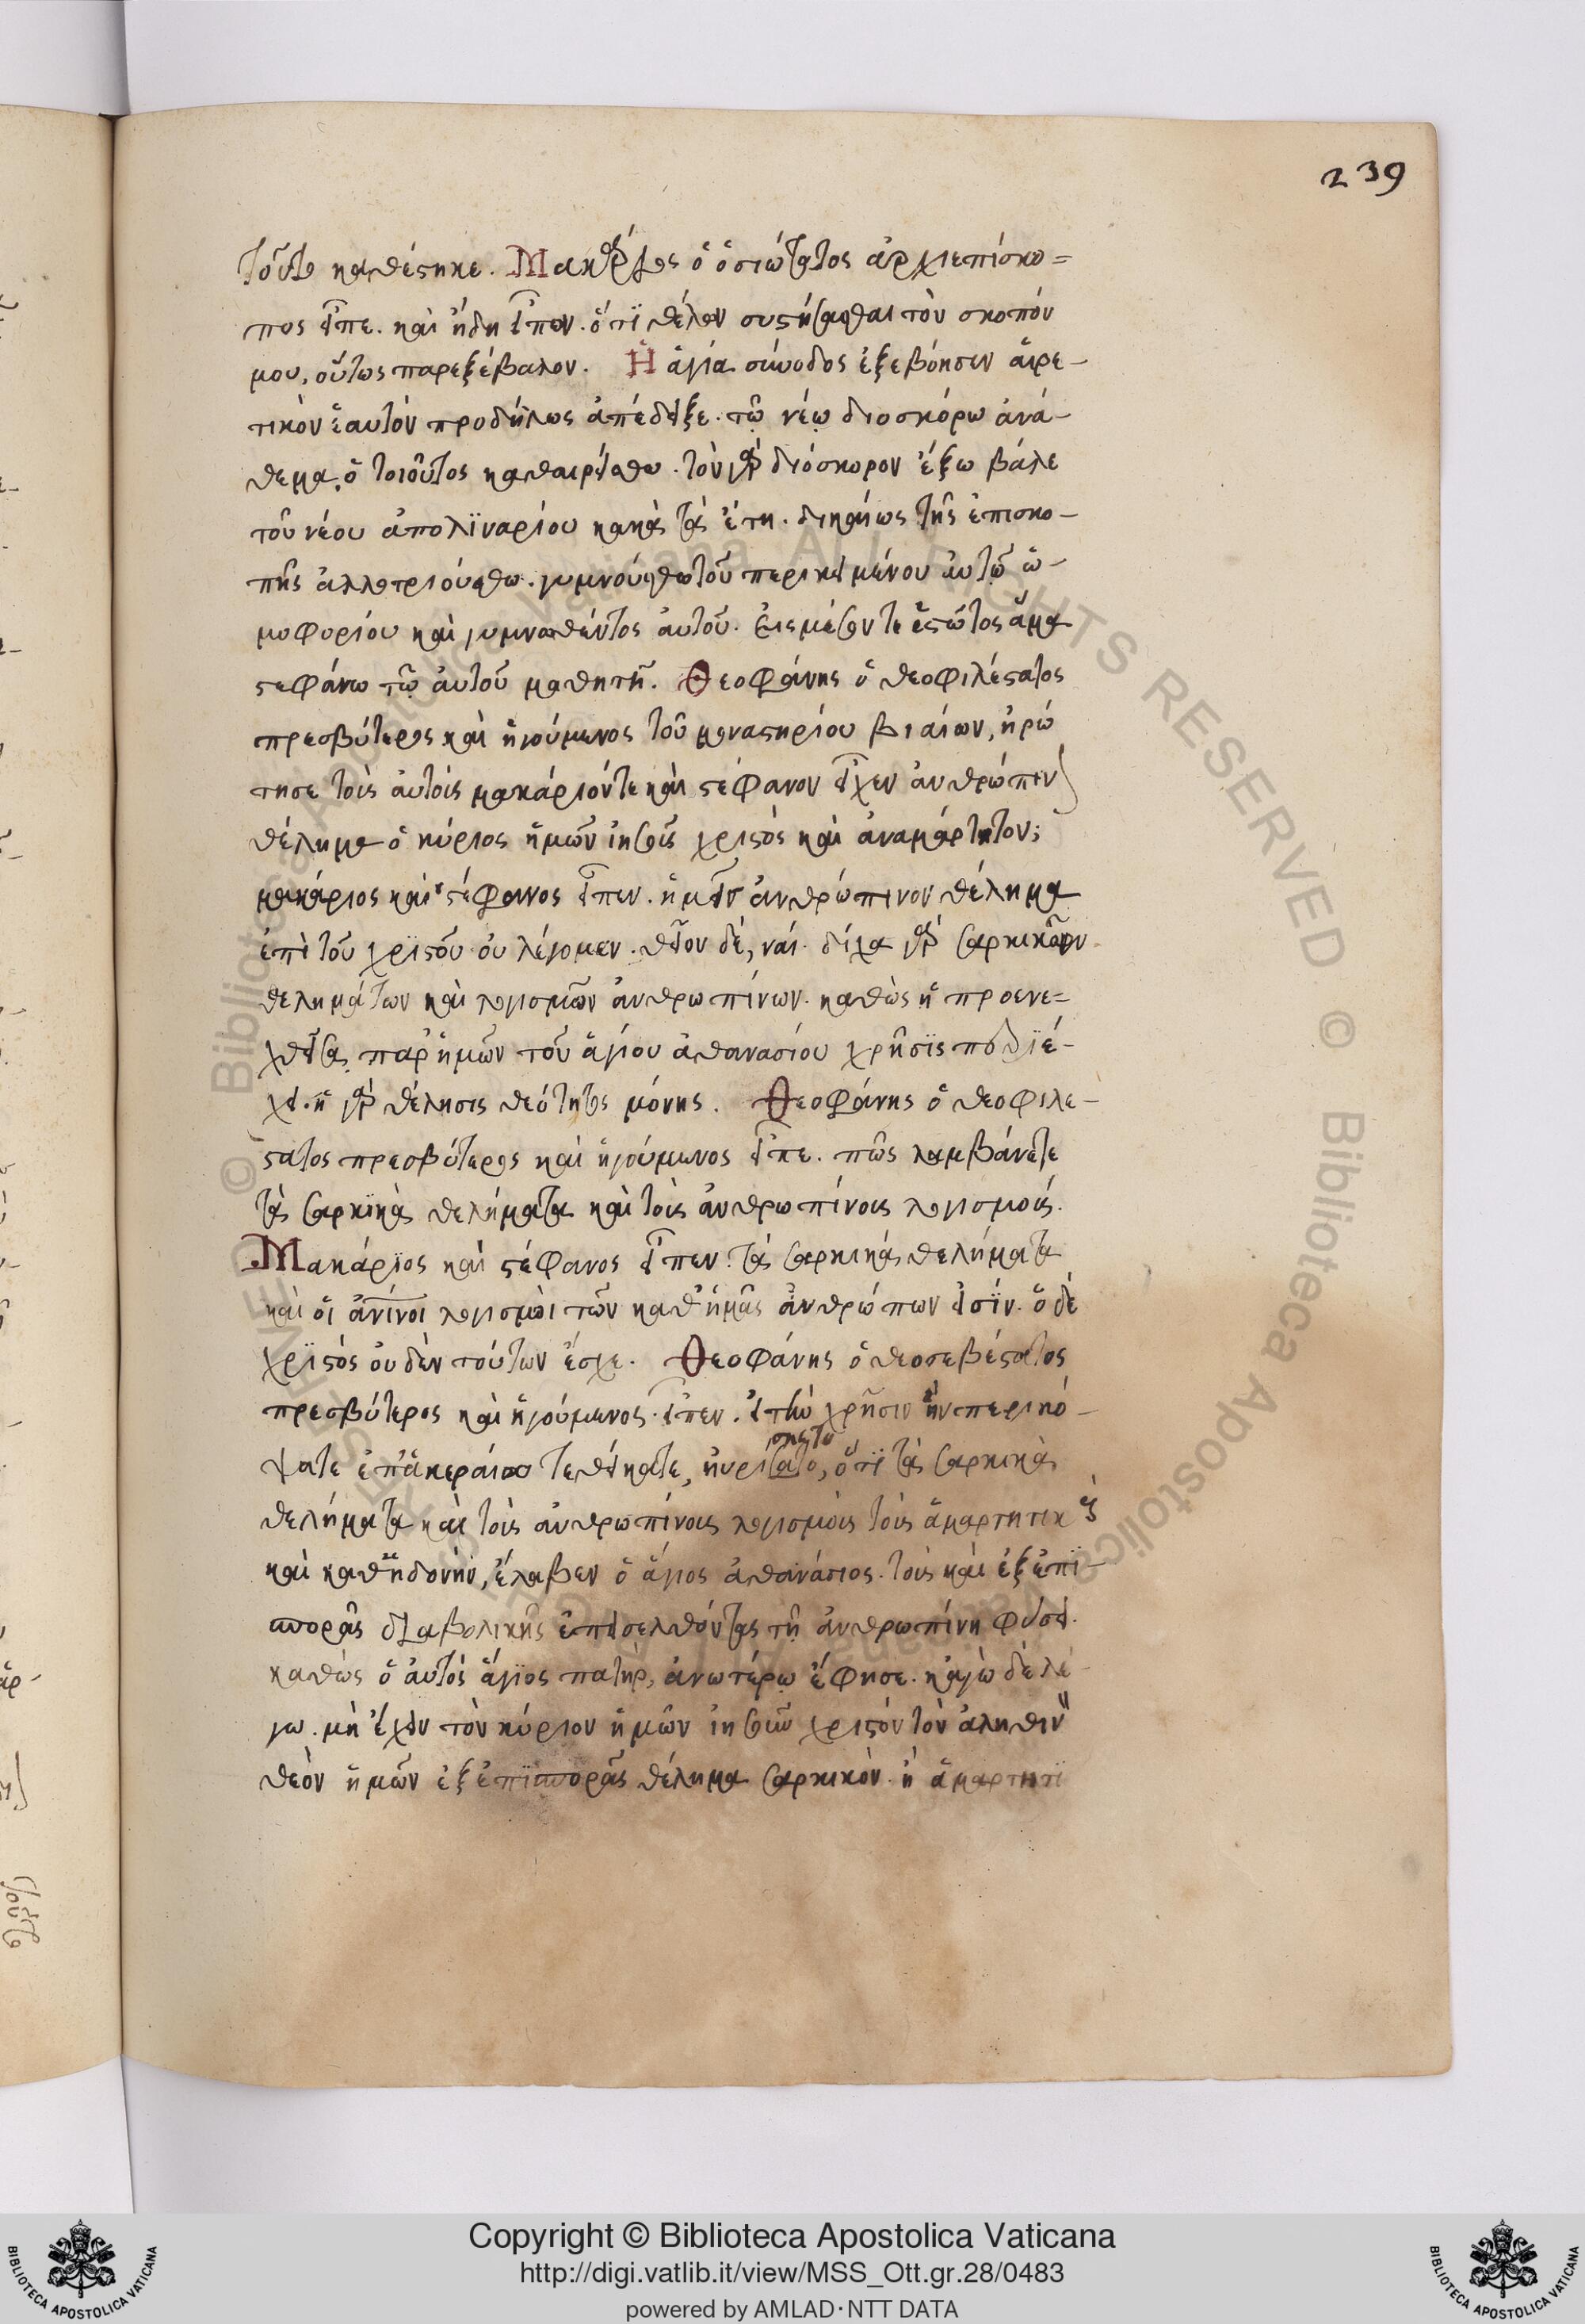 239
τοῦτο καθέστηκε. Μακάριος ὁ ὁσιώτατος ἀρχιεπίσκο=
πος εἶπε. καὶ ἤδη εἶπον. ὅτι θέλων συστήσασθαι τὸν σκοπόν
μου, οὕτως παρεξέβαλον. Ἡ ἁγία σύνοδος ἐξεβόησεν αἱρε-
τικὸν ἑαυτὸν προδήλως ἀπέδειξε. τῷ νέῳ διοσκόρω ἀνά-
θεμα. ὁ τοιοῦτος καθαιρείσθω. τὸν γὰρ διόσκορον ἔξω βάλε
τοῦ νέου ἀπολϊναρίου κακὰ τὰ ἔτη. δικαίως τῆς ἐπισκο-
πῆς ἀλλοτριούσθω. γυμνούσθω τοῦ περικειμένου αὐτῷ ὠ-
μοφορίου καὶ γυμνωθέντος αὐτοῦ. εἰς μέσον τε ἑστῶτος ἅμα
στεφάνω τῷ αὐτοῦ μαθητῆ. Θεοφάνης ὁ θεοφιλέστατος
πρεσβύτερος καὶ ἡγούμενος τοῦ μοναστηρίου βιαίων, ἠρώ
τησε τοὺς αὐτοὺς μακάριόν τε καὶ στέφανον εἶχεν ἀνθρώπινον
θέλημα ὁ κύριος ἡμῶν ἰησοῦς χριστὸς καὶ ἀναμάρτητον;
μακάριος καὶ στέφανος εἶπεν. ἡμεῖς ἀνθρώπινον θέλημα
ἐπὶ τοῦ χρϊστοῦ οὐ λέγομεν. θεῖον δέ, ναί. δίχα γὰρ σαρκικῶν
θελημάτων καὶ λογισμῶν ἀνθρωπίνων. καθὼς ἡ προενε=
χθεῖσα παρ' ἡμῶν τοῦ ἁγίου ἀθανασίου χρῆσϊς περϊέ-
χει. ἡ γὰρ θέλησις θεότητος μόνης. Θεοφάνης ὁ θεοφιλέ-
στατος πρεσβύτερος καὶ ἡγούμενος εἶπε. πῶς λαμβάνετε
τὰ σαρκϊκὰ θελήματα καὶ τοὺς ἀνθρωπίνους λογισμούς.
Μακάρϊος καὶ στέφανος εἶπεν. τὰ σαρκικὰ θελήματα
καὶ οἱ ἀνίνοι λογισμοὶ τῶν καθ' ἡμᾶς ἀνθρώπων εἰσΐν. ὁ δὲ
χρϊστὸς οὐδὲν τούτων ἔσχε. Θεοφάνης ὁ θεοσεβέστατος
πρεσβύτερος καὶ ἡγούμενος εἶπεν. εἰ τὴν χρῆσιν ἣν περιεκό-
ψατε ἐπ' ἀκεραίω τεθείκατε, ηὑρίσκετο, ὅτϊ τὰ σαρκικὰ
θελήματα καὶ τοὺς ἀνθρωπίνους λογισμοὺς τοὺς ἁμαρτητικοὺς
καὶ καθ' ἡδονὴν, ἔλαβεν ὁ ἅγιος ἀθανάσιος. τοὺς καὶ ἐξ ἐπϊ-
σπορᾶς διαβολικῆς ἐπεισελθόντας τῇ ἀνθρωπίνη φύσει.
καθὼς ὁ αὐτὸς ἅγϊος πατὴρ, ἀνωτέρω ἔφησε. κἀγὼ δὲ λέ-
γω. μὴ ἔχειν τὸν κύριον ἡμῶν ἰησοῦν χριστὸν τὸν ἀληθινὸν
θεὸν ἡμῶν ἐξ ἐπϊσπορᾶς θέλημα σαρκικὸν. ἢ ἁμαρτητϊ
Copyright © Biblioteca Apostolica Vaticana
http://digi.vatlib.it/view/MSS_Ott.gr.28/0483
powered by AMLAD·NTT DATA